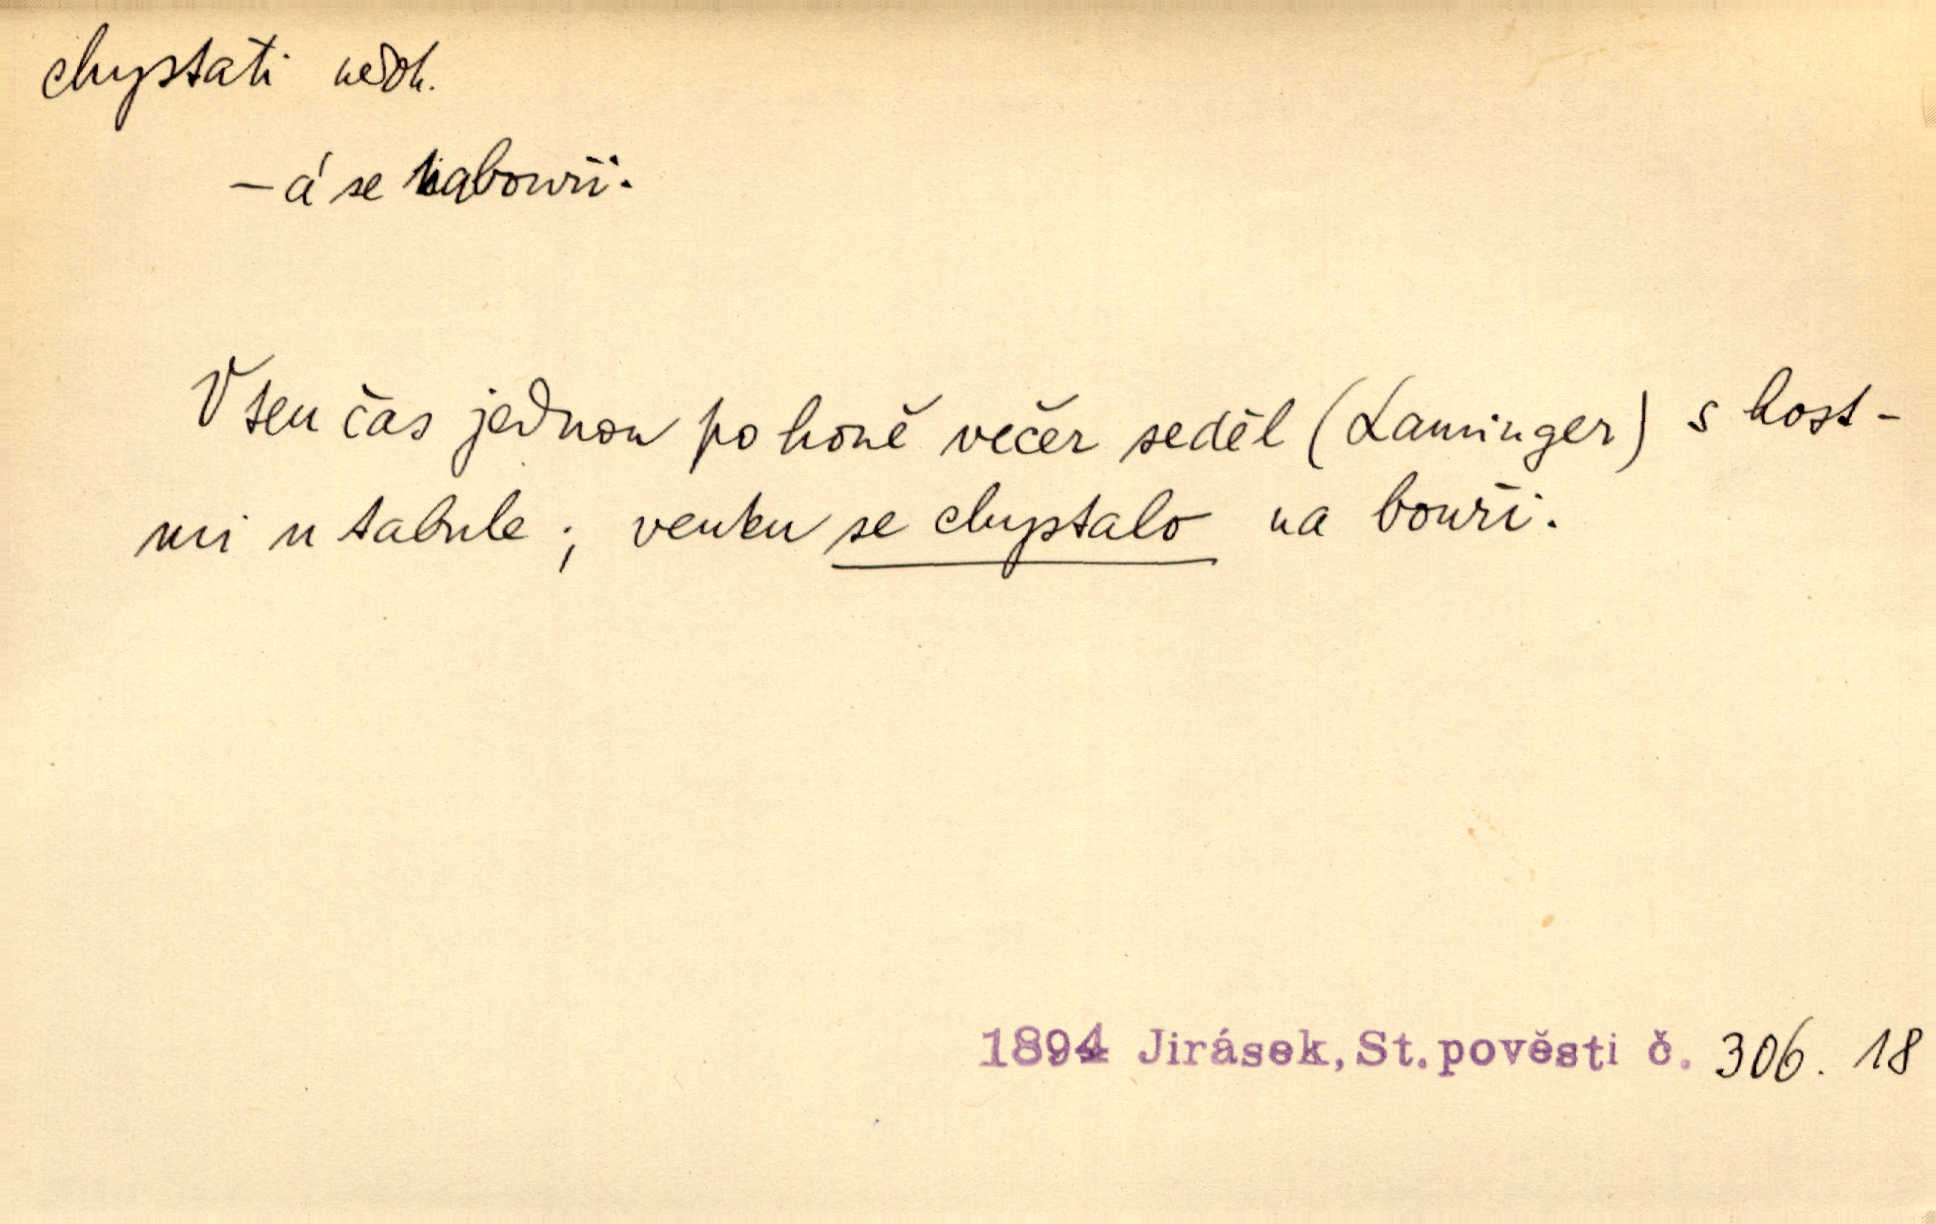 chystati nedok.
– á se na bouři.
V ten čas jednou po honě večer seděl (Laminger) s host-
mi u tabule; venku se chystalo na bouři.
1894 Jirásek, St. pověsti č. 306. 18